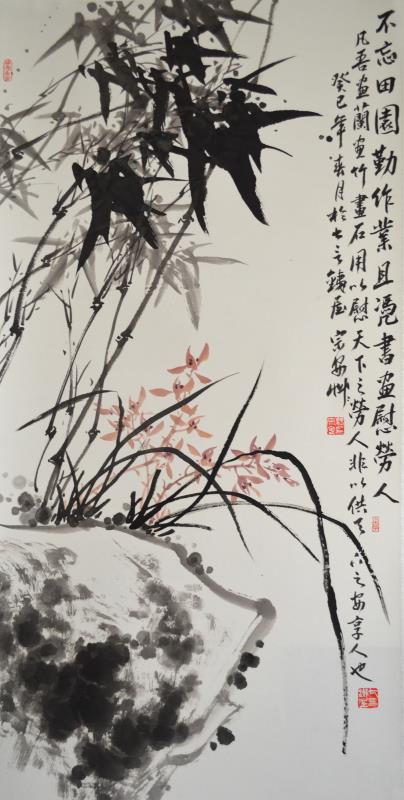 不忘田園勤作業且憑書画慰勞人
凡吾画蘭画竹畫石用以慰天下之勞人非以供天下之安享人也
癸巳年春月於七之錢屋宗安艸